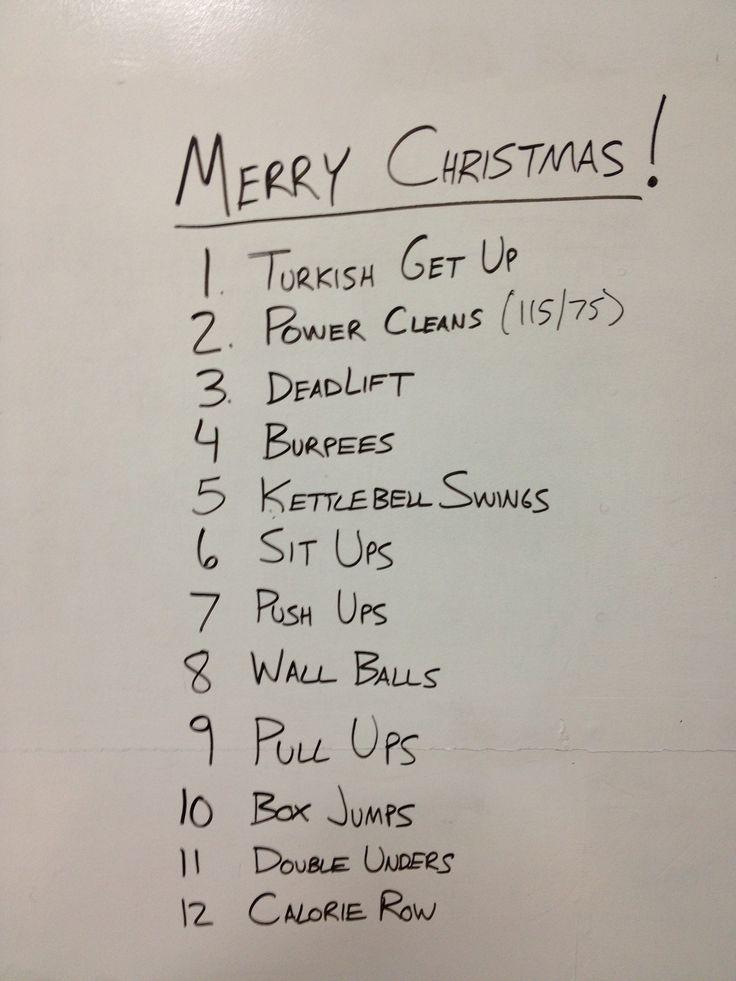 MERRY CHRISTMAS!
1. TURKISH GET UP
2. POWER CLEANS (115/75)
3. DEADLIFT
4 BURPEES
5 KETTLEBELL SWINGS
6 SIT UPS
7 PUSH UPS
8 WALL BALLS
9 PULL UPS
10 BOX JUMPS
11 DOUBLE UNDERS
12 CALORIE ROW